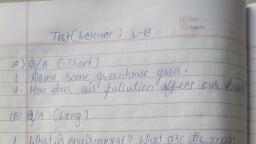 Test (Science) L-13
A) Q/A (Short)
1. Name some greenhouse gases.
2. How does air pollution affect our
(B) Q/A (Long)
1. What is environment? What are the main